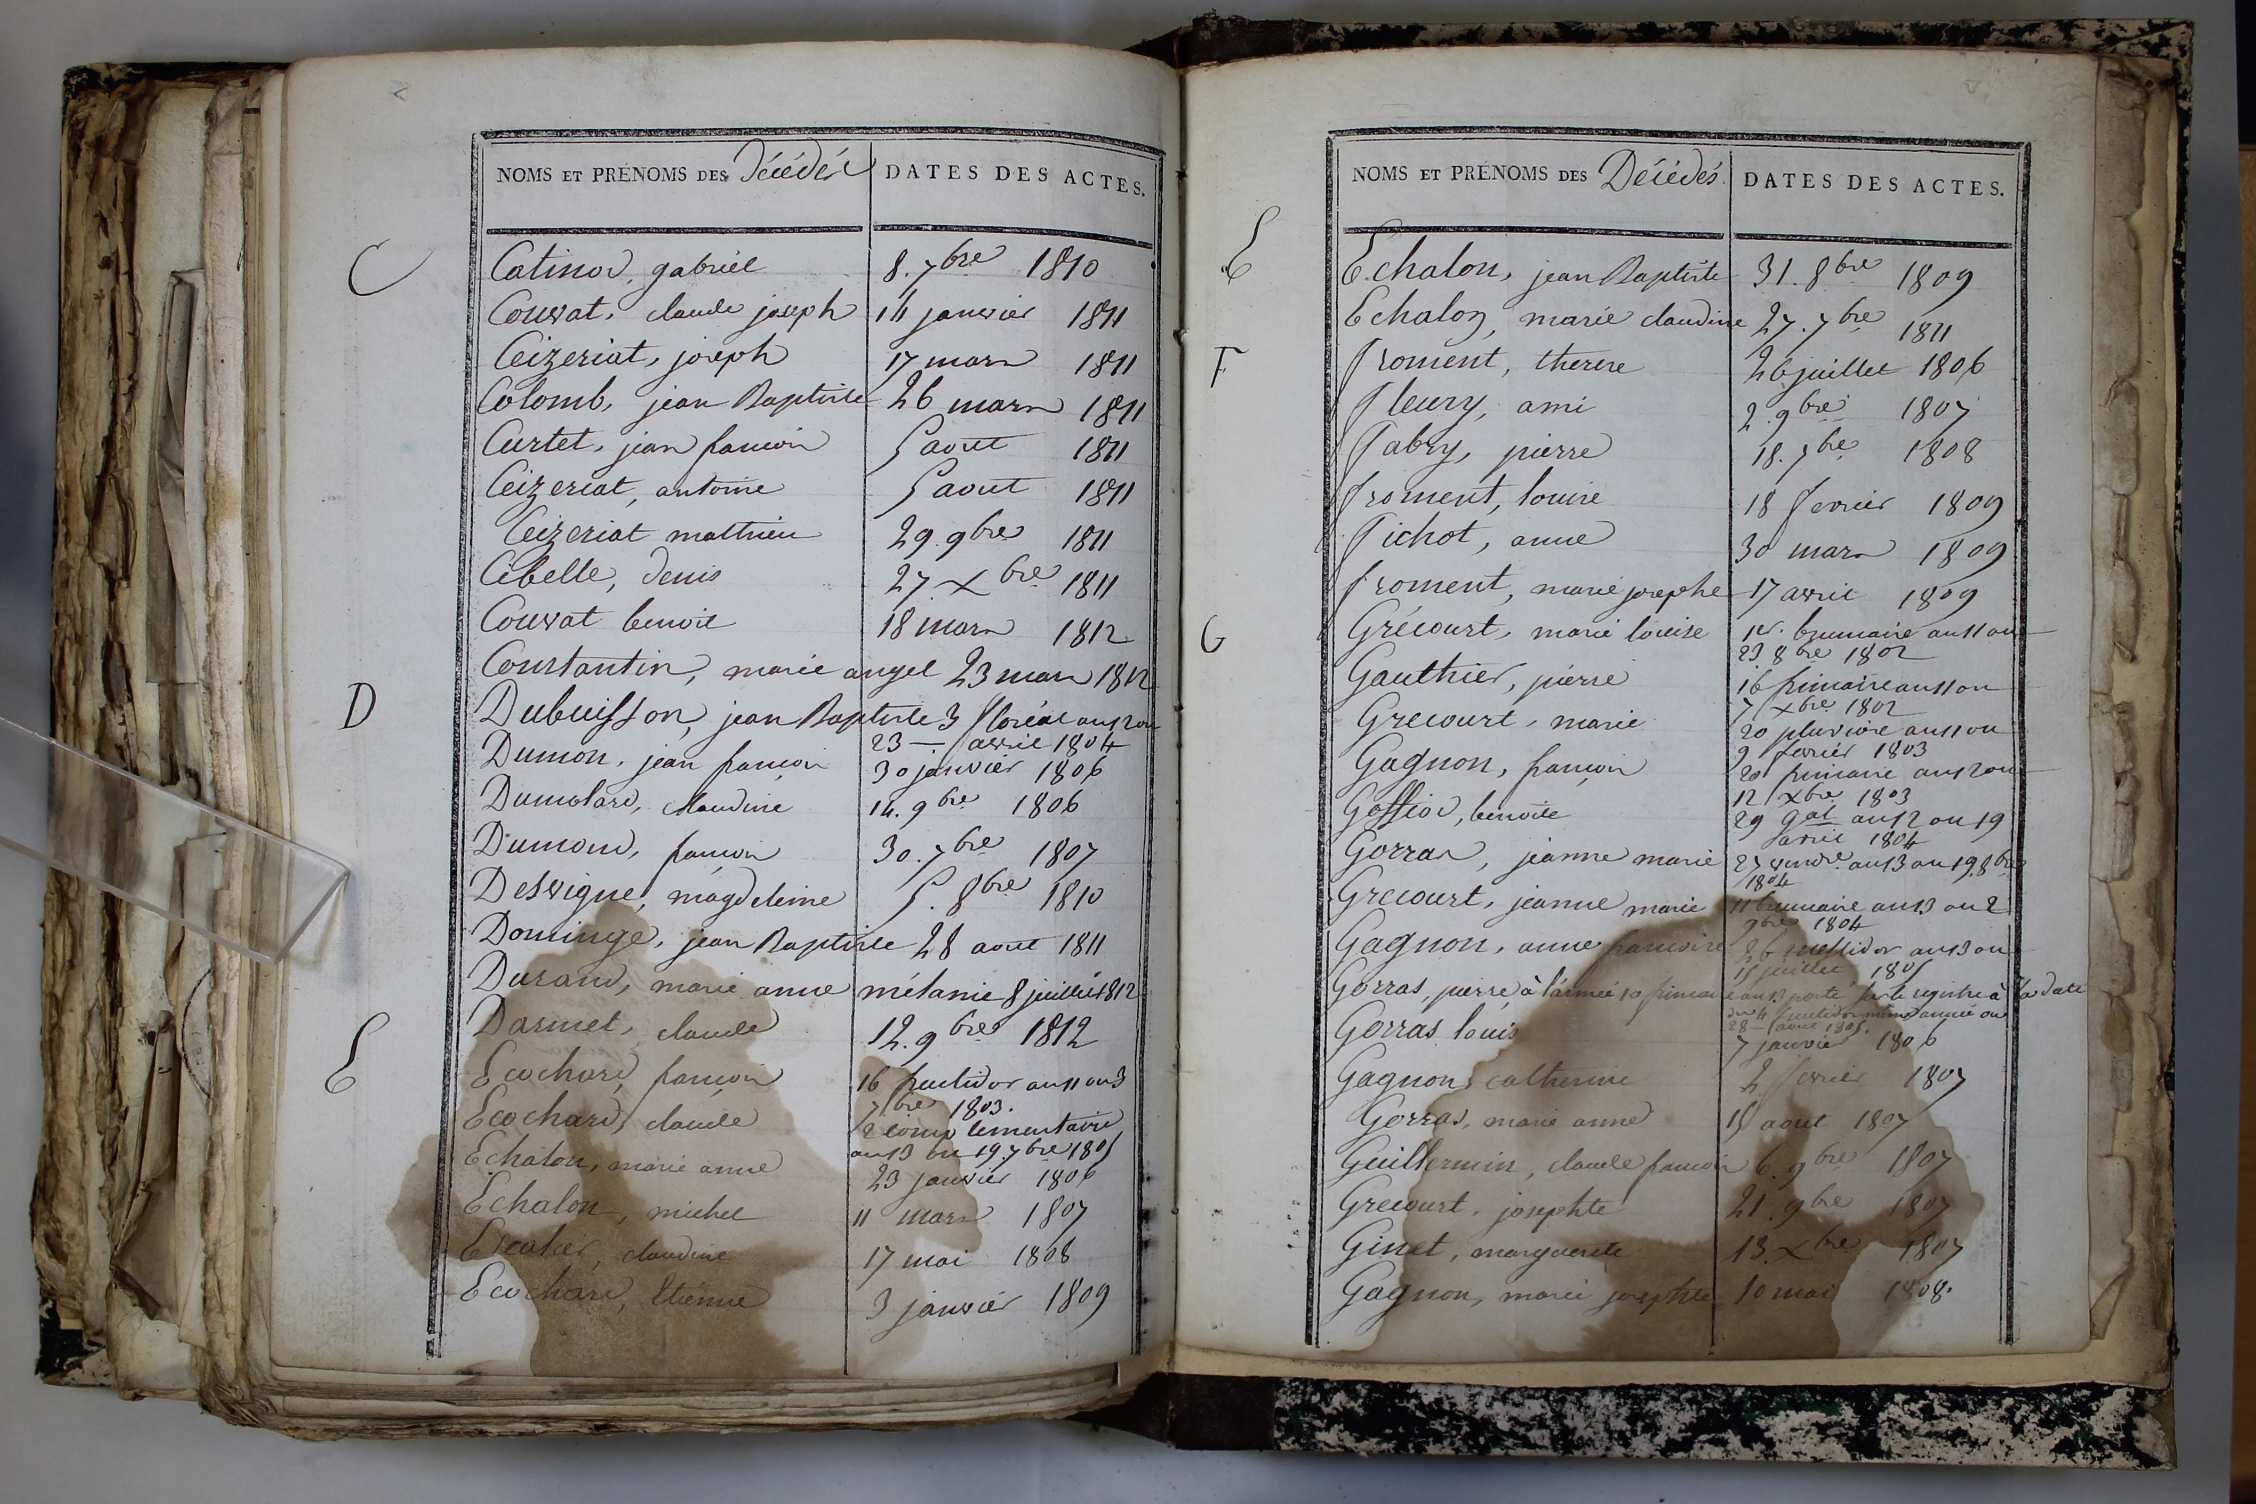 NOMS ET PRÉNOMS DES Décédés DATES DES ACTES.
C
Catinod, gabriel 8. 7bre 1810
Couvat, claude joseph 14 janvier 1811
Ceizeriat, joseph 17 mars 1811
Colomb, jean Baptiste 26 mars 1811
Curtet, jean françois 5 aout 1811
Ceizeriat, antoine 5 aout 1811
Ceizeriat mathieu 29. 9bre 1811
Cibelle, denis 27. Xbre 1811
Couvat benoit 18 mars 1812
Constantin, marie angel 23 mars 1812
D
Dubuisson, jean Baptiste 3 floréal an 12 ou
23 avril 1804
Dumon, jean françois 30 janvier 1806
Dumolard, claudine 14. 9bre 1806
Dumond, françois 30. 7bre 1807
Desvigne, magdeleine 5. 8bre 1810
Dominge, jean Baptiste 28 aout 1811
Durand, marie anne mélanie 8 juillet 1812
Darmet, claude 12. 9bre 1812
E
Ecochard, françois 16 fructidor an 11 ou 3
7bre 1803.
Ecochard, claude 2 complementaire
an 13 ou 19. 7bre 1805
Echalon, marie anne 23 janvier 1806
Echalon, michel 11 mars 1807
claudine 17 mai 1808
Ecochard, Etienne 3 janvier 1809
NOMS ET PRÉNOMS DES Décédés DATES DES ACTES.
E
Echalon, jean Baptiste 31. 8bre 1809
Echalon, marie claudine 27. 7bre 1811
F
froment, therese 26 juillet 1806
fleury, ami 2. 9bre 1807
fabry, pierre 18. 7bre 1808
froment, louise 18 fevrier 1809
fichot, anne 30 mars 1809
froment, marie josephe 17 avril 1809
G
Grécourt, marie louise 1er. brumaire an 11 ou
23 8bre 1802
Gauthier, pierre 16 frimaire an 11 ou
7 Xbre 1802
Grecourt, marie 20 pluviose an 11 ou
9 fevrier 1803
Gagnon, françois 20 frimaire an 12 ou
12 Xbre 1803
Goffiod, benoite 29 gal an 12 ou 19
avril 1804
Gorras, jeanne marie 27 vendre an 13 ou 19. 8bre
1804
Grecourt, jeanne marie 11 brumaire an 13 ou 2
9bre 1804
Gagnon, anne francoise 26 messidor an 13 ou
15 juillet 1805
Gorras, pierre à l'armée 10 frimaire an 13 porté sur le registre à la date
du 4 fructidor même année ou
28 aout 1805.
Gorras louis 7 janvier 1806
Gagnon, catherine 2 fevrier 1807
Gorras, marie anne 15 aout 1807
Guillermin, claude francois 6. 9bre 1807
Grecourt, josephte 21. 9bre 1807
Ginet, marguerite 13. Xbre 1807
Gagnon, marie josephte 10 mai 1808.